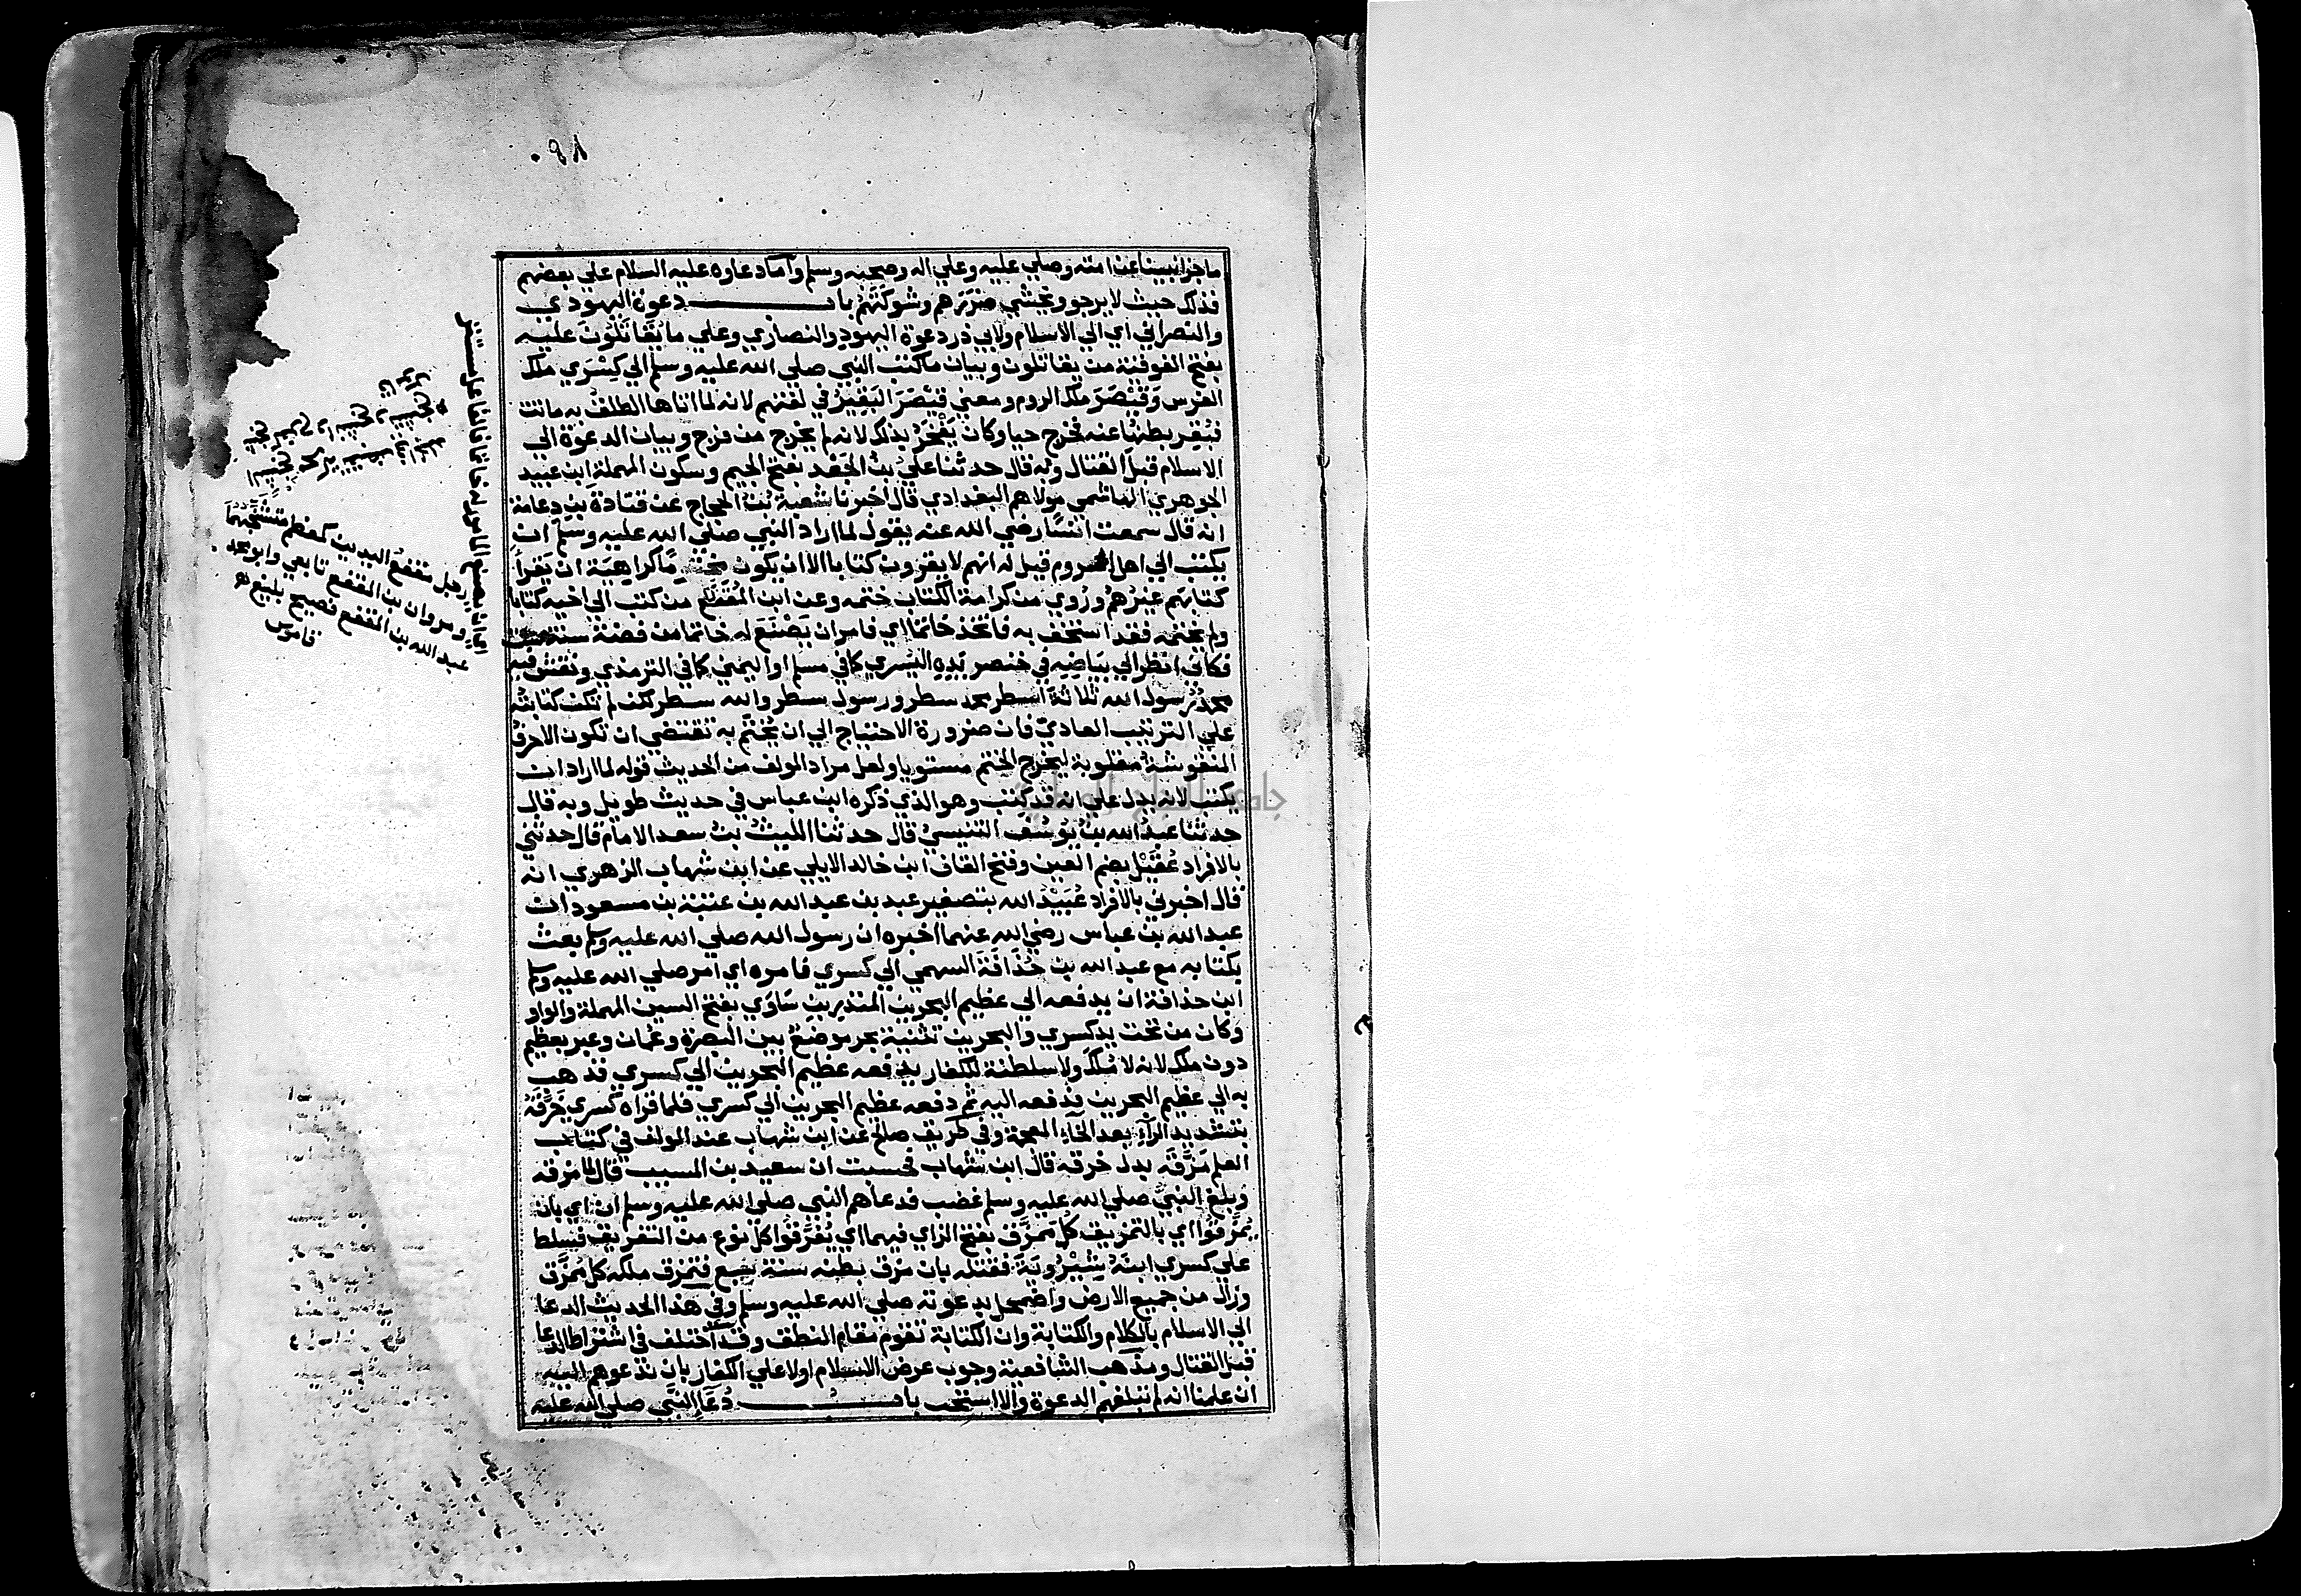 ما جزا نبينا عن امته وصلي عليه وعلي اله وصحبه وسلم واما دعاوه عليه السلام علي بعضهم
فذلك حيث لا يرجو ويخشي ضررهم وشوكتهم باب دعوة اليهودي
والنصراني اي الي الاسلام ولابي ذر دعوة اليهود والنصاري وعلي ما يقاتلون عليه
بفتح الفوقية من يقاتلون وبيان ما كتب النبي صلي الله عليه وسلم الي كسري ملك
الفرس وقيصر ملك الروم ومعني قيصر البقير في لغتهم لانه لما اتاها الطلق به ماتت
فبقر بطنها عنه فخرج حيا وكان يفخر بذلك لانه لم يخرج من فرج وبيان الدعوة الي
الاسلام قبل القتال وبه قال حدثنا علي بن الجعد بفتح الجيم وسكون المهملة ابن عبيد
الجوهري الهاشمي مولاهم البغدادي قال اخبرنا شعبة بن الحجاج عن قتادة بن دعامة
انه قال سمعت انسا رضي الله عنه يقول لما اراد النبي صلي الله عليه وسلم ان
يكتب الي اهل الروم قيل له انهم لا يقرون كتابا الا ان يكون مختوما كراهية ان يقرا
كتابهم غيرهم وروي من كرامة الكتاب ختمه وعن ابن المقفع من كتب الي اخيه كتابا
ولم يختمه فقد استخف به فاتخذ خاتما اي فامر ان يصنع له خاتما من فضة سنة
فكاني انظر الي بياضه في خنصر يده اليسري كما في مسلم او اليمني كما في الترمذي ونقش فيه
محمد رسول الله ثلاثة اسطر محمد سطر ورسول سطر والله سطر لكن لم تكن كتابته
علي الترتيب العادي فان ضرورة الاحتياج الي ان يختم به تقتضي ان تكون الاحرف
المنقوشة مقلوبة ليخرج الختم مستويا ولعل مراد المولف من الحديث قوله لما اراد ان
يكتب لانه يدل علي انه قد كتب وهو الذي ذكره ابن عباس في حديث طويل وبه قال
حدثنا عبد الله بن يوسف التنيسي قال حدثنا الليث بن سعد الامام قال حدثني
بالافراد عقيل بضم العين وفتح القاف ابن خالد الايلي عن ابن شهاب الزهري انه
قال اخبرني بالافراد عبيد الله بتصغير عبد بن عبد الله بن عتبة بن مسعود ان
عبد الله بن عباس رضي الله عنهما اخبره ان رسول الله صلي الله عليه وسلم بعث
بكتابه مع عبد الله بن حذافة السهمي الي كسري فامره اي امر صلي الله عليه وسلم
ابن حذافة ان يدفعه الي عظيم البحرين المنذر بن ساوي بفتح السين المهملة والواو
وكان من تحت يد كسري والبحرين تثنية بحر موضع بين البصرة وعمان وعبر بعظيم
دون ملك لانه لا ملك ولا سلطنة للكفار يدفعه عظيم البحرين الي كسري فذهب
به الي عظيم البحرين فدفعه اليه ثم دفعه عظيم البحرين الي كسري فلما قراه كسري خرقه
بتشديد الراء بعد الخاء المعجمة وفي طريق صالح عن ابن شهاب عند المولف في كتاب
العلم مزقه بدل خرقه قال ابن شهاب فحسبت ان سعيد بن المسيب قال لما مزقه
وبلغ النبي صلي الله عليه وسلم غضب فدعا هم النبي صلي الله عليه وسلم ان اي بان
يمزقوا اي بالتمزيق كل ممزق بفتح الزاي فيهما اي يفرقوا كل نوع من التفريق فسلط
علي كسري ابنه شيرويه فقتله بان مزق بطنه سنة سبع فتمزق ملكه كل ممزق
وزال من جميع الارض واضمحل بدعوته صلي الله عليه وسلم وفي هذا الحديث الدعا
الي الاسلام بالكلام والكتابة وان الكتابة تقوم مقام النطق وقد اختلف في اشتراط الدعا
قبل القتال ومذهب الشافعية وجوب عرض الاسلام اولا علي الكفار بان ندعوهم اليه
ان علمنا انه لم تبلغهم الدعوة والا استحب باب دعا النبي صلي الله عليه
رجل مقفع اليدين كمعظم متشنجهما
ومروان بن المقفع تابعي وابو محمد
عبد الله بن المقفع فصيح بليغ
قاموس